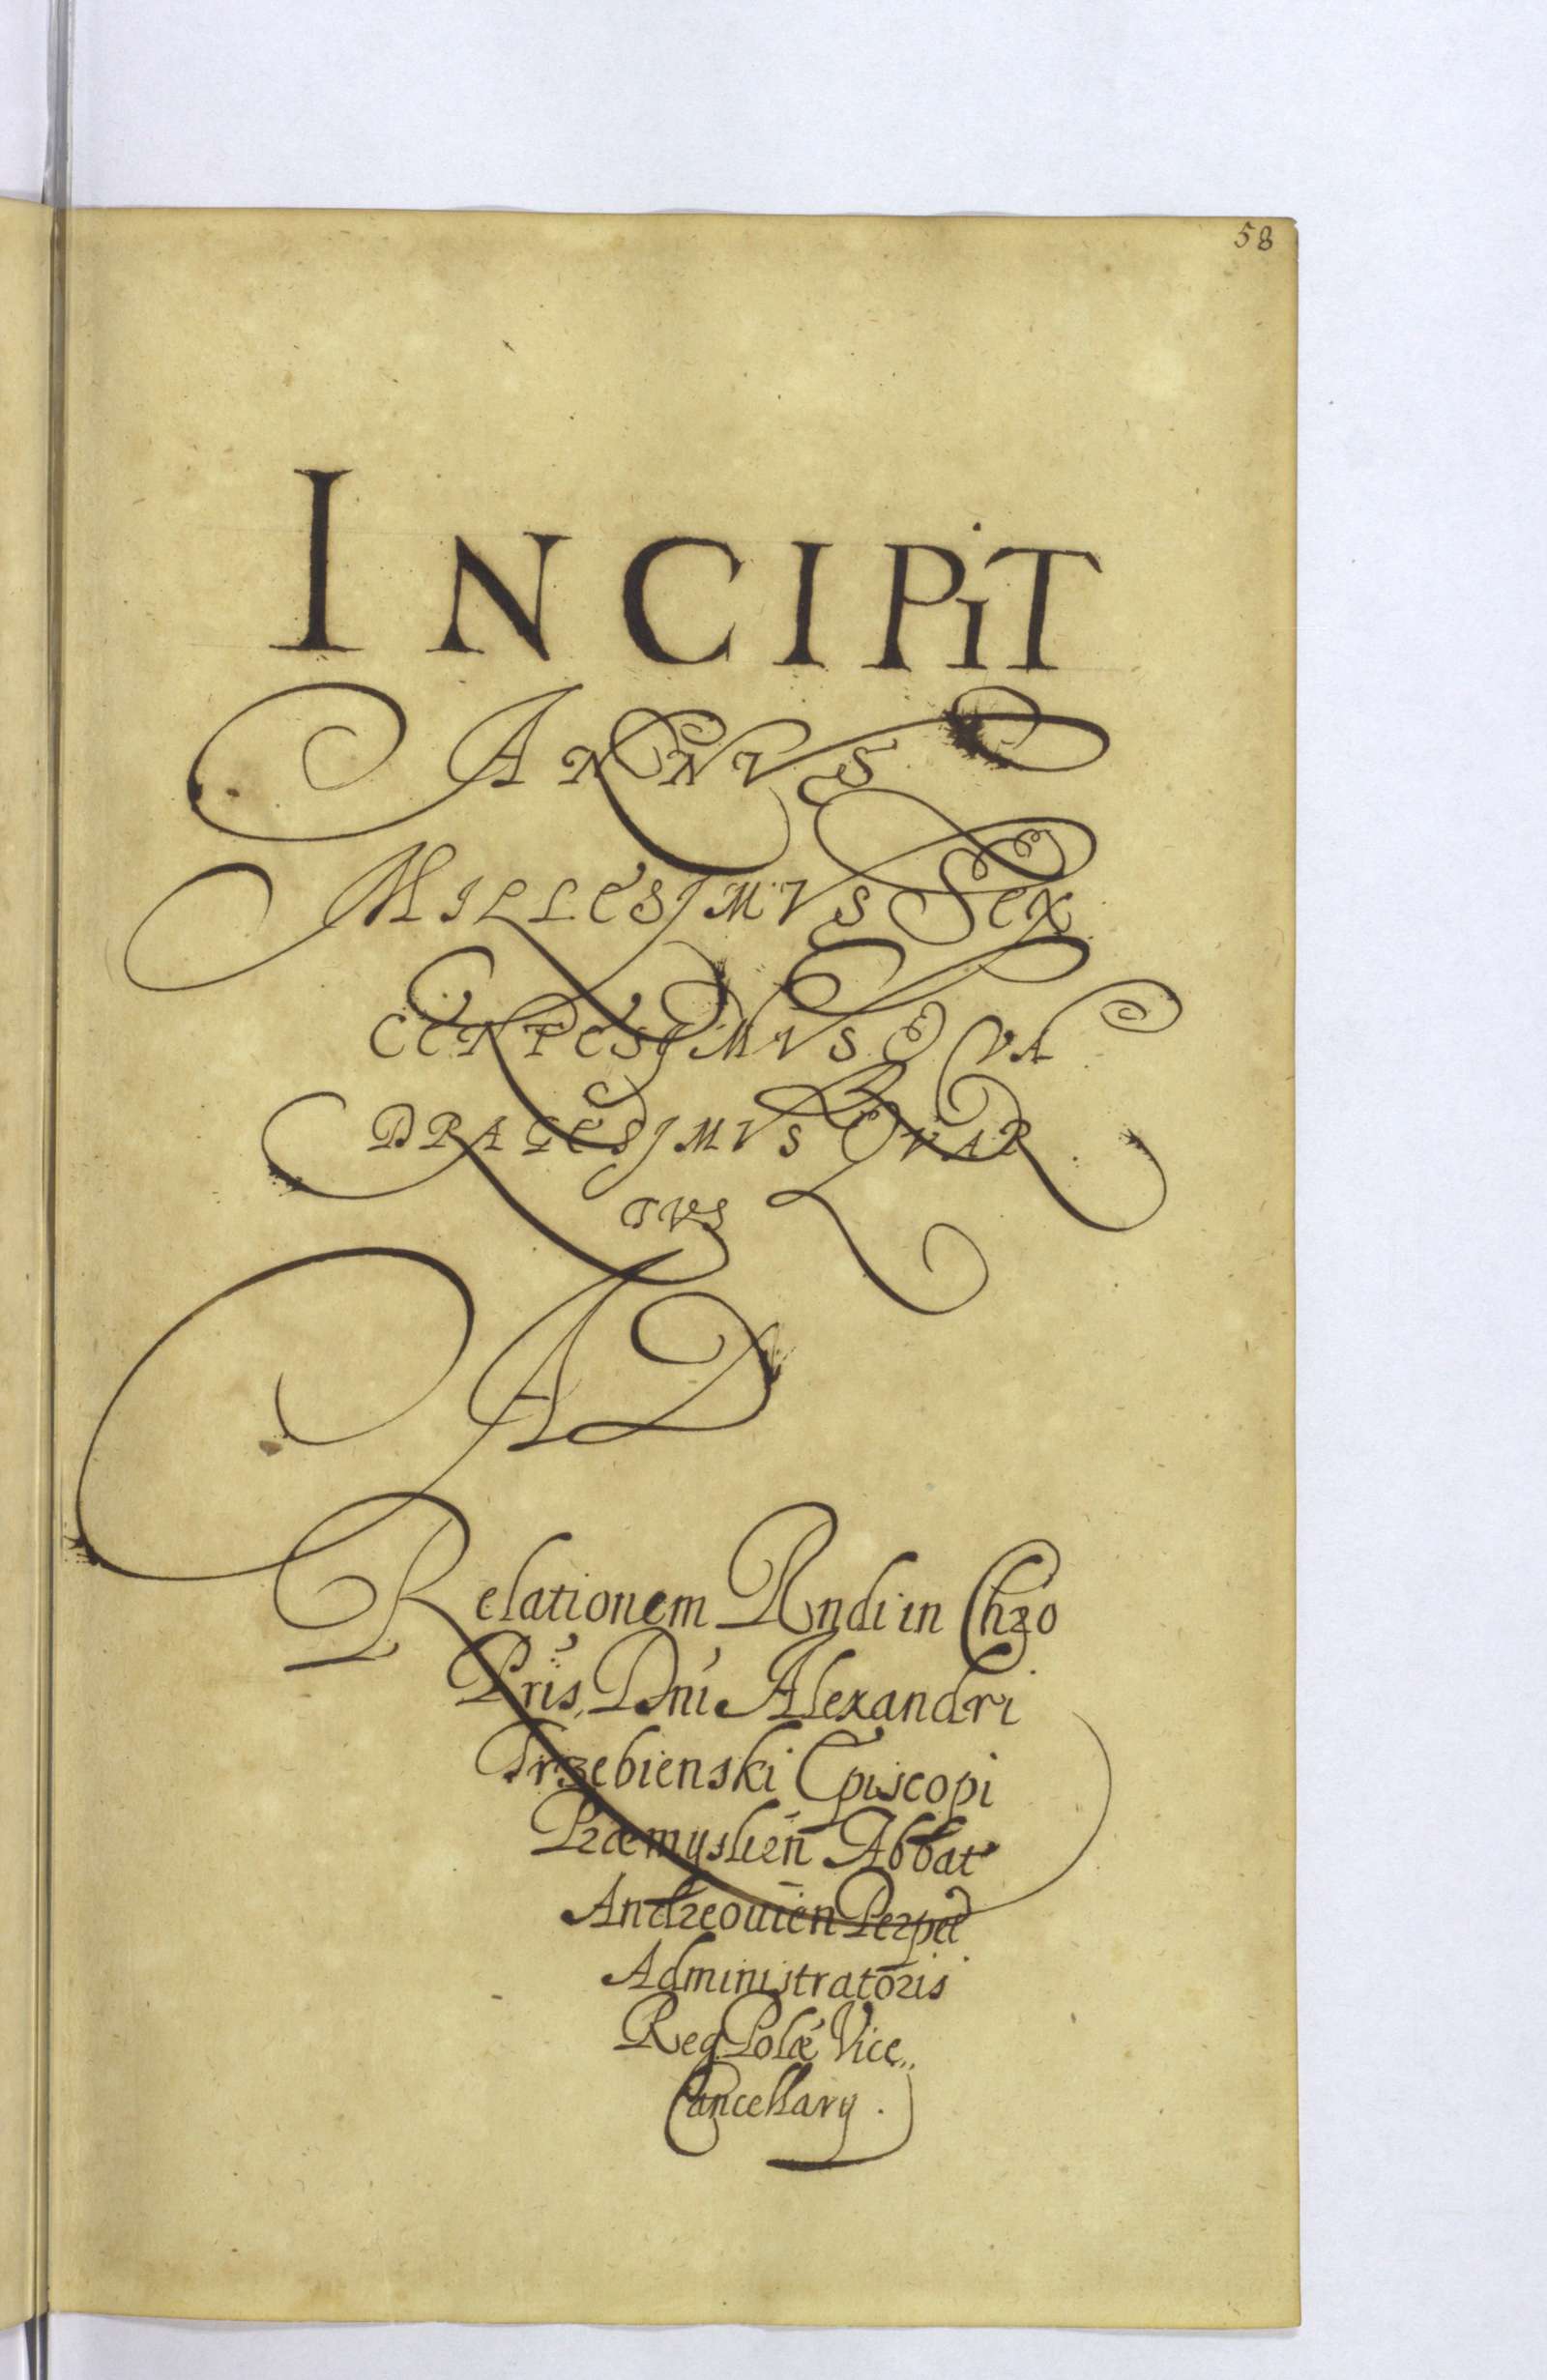 58
INCIPiT
ANNVS
MILLESJMVS SEX
CENTESJMVS QVA
DRAGESJMVS QVAR
TVS
AD
Relationem Rndi in Chro
Pris, Dni Alexandri
Trzebienski Episcopi
Præmyslien Abbat
Andreouien Perpet
Administratoris
Reg Polæ Vice„
Cancellary.